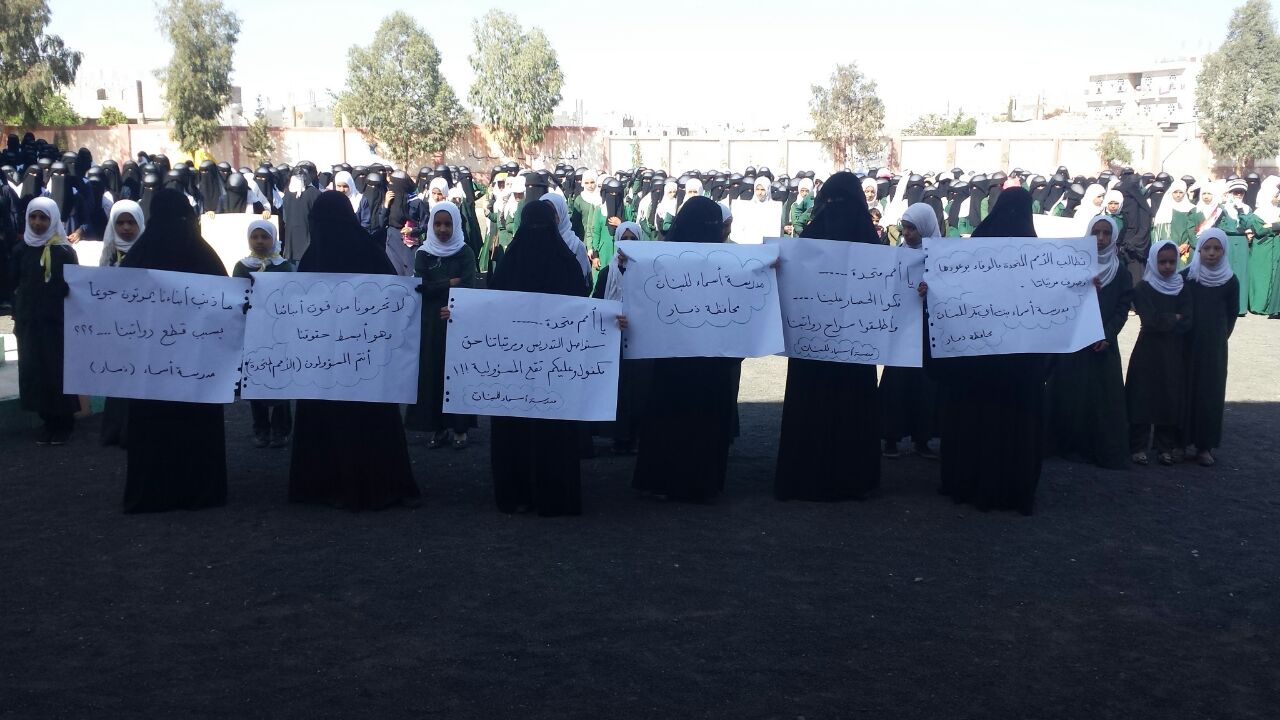 ما ذنب أبناءنا يموتون جوعا
بسبب قطع رواتبنا ... ؟؟؟
مدرسة أسماء (ذمار)
لا تحرمونا من قوت أبنائنا
وهو أبسط حقوقنا
أنتم المسؤولون (الأمم المتحدة)
يا أمم متحدة ......
سنواصل التدريس ومرتباتنا حق
مكفول وعليكم تقع المسؤولية !!!
مدرسة أسماء للبنات
مدرسة أسماء للبنات
محافظة ذمار
يا أمم متحدة .....
فكوا الحصار علينا ....
وأطلقوا سراح رواتبنا
مدرسة أسماء للبنات
نطالب الأمم المتحدة بالوفاء بوعودها
وصرف مرتباتنا.
مدرسة أسماء بنت أبي بكر للبنات
محافظة ذمار